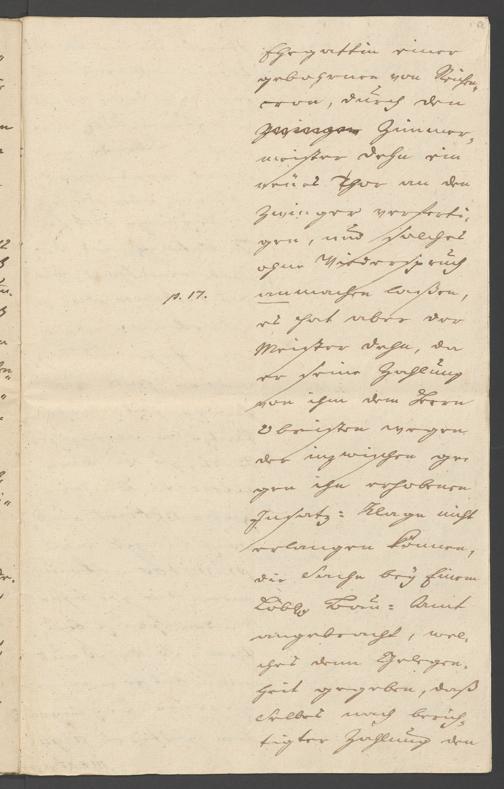 Ehegattin einer
gebohrnen von Reichen-
cron, durch den
Zimmer-
meister Dehn ein
neues Thor an den
Zwinger verferti-
gen, und solches
ohne Wiederspruch
anmachen laßen,
p. 17.
es hat aber der
Meister Dehn, da
er seine Zahlung
von ihm dem Herrn
Obristen wegen
der inzwischen ge-
gen ihn erhobenen
Insatz-Klage nicht
erlangen können,
die Sache bey Einem
Löbl. Bau-Amt
angebracht, wel-
ches dann Gelegen-
heit gegeben, daß
selbes nach berich-
tigter Zahlung den